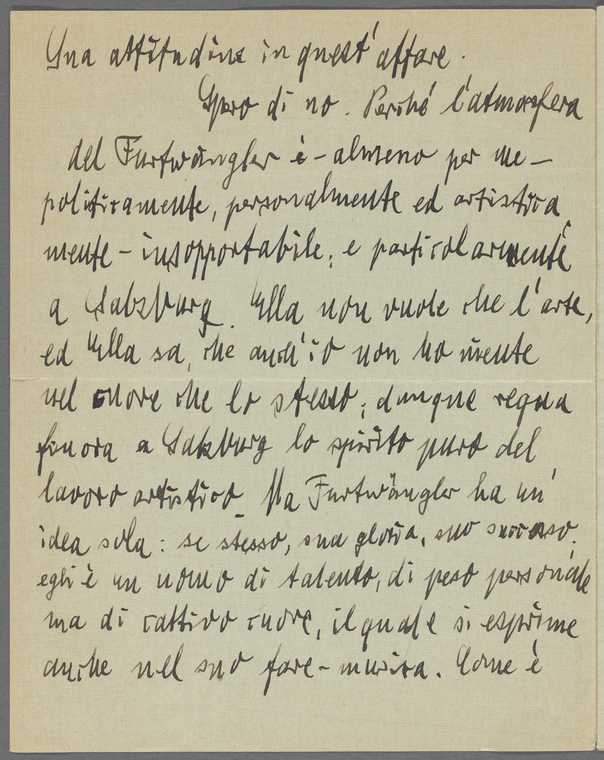 Sua attitudine in quest'affare.
Spero di no. Perché l'atmosfera
del Furtwängler è - almeno per me -
politicamente, personalmente ed artistica
mente - insopportabile; e particolarmente
a Salzburg. Ella non vuole che l'arte,
ed Ella sa, che anch'io non ho niente
nel cuore che lo stesso; dunque regna
finora a Salzburg lo spirito puro del
lavoro artistico. Ma Furtwängler ha un'
idea sola: se stesso, sua gloria, suo successo.
egli è un uomo di talento, di peso personale
ma di cattivo cuore, il quale si esprime
anche nel suo fare-musica. Come è